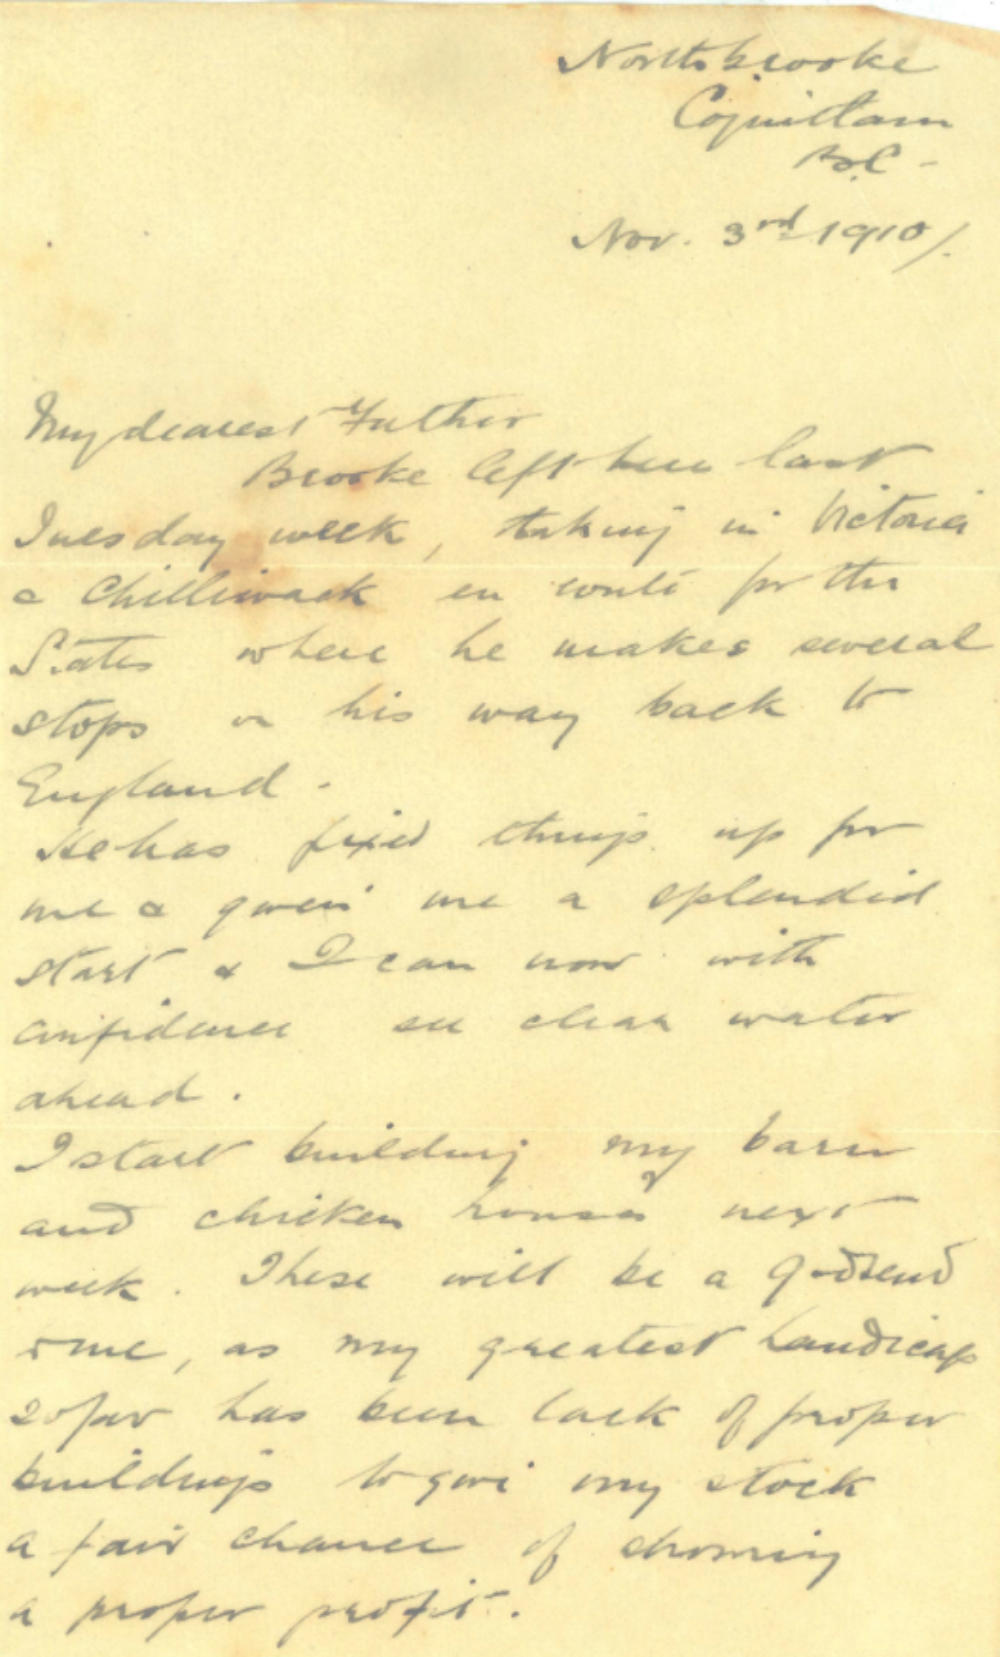 Northbrooke
Coquitlam
B.C -
Nov. 3rd 1910/.
My dearest Father
Brooke left here last
Tuesday week, taking in Victoria
& Chilliwack en route for the
States where he makes several
stops on his way back to
England.
He has fixed things up for
me & given me a splendid
start & I can now with
confidence see clear water
ahead.
I start building my barn
and chicken houses next
week. These will be a godsend
to me, as my greatest handicap
so far has been lack of proper
buildings to give my stock
a fair chance of showing
a proper profit.